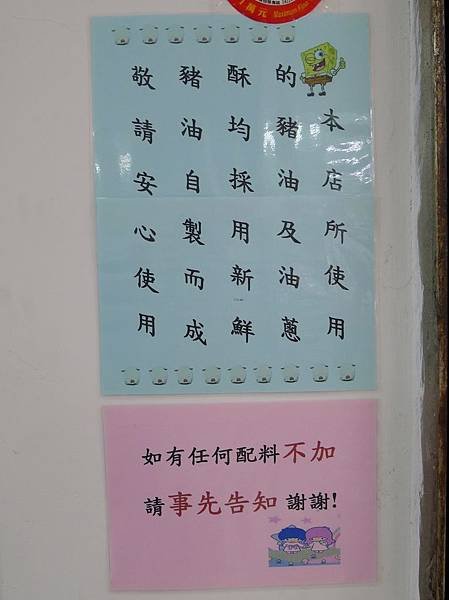 本店所使用
的豬油及油蔥
酥均採用新鮮
豬油自製而成
敬請安心使用
如有任何配料不加
請事先告知 謝謝!